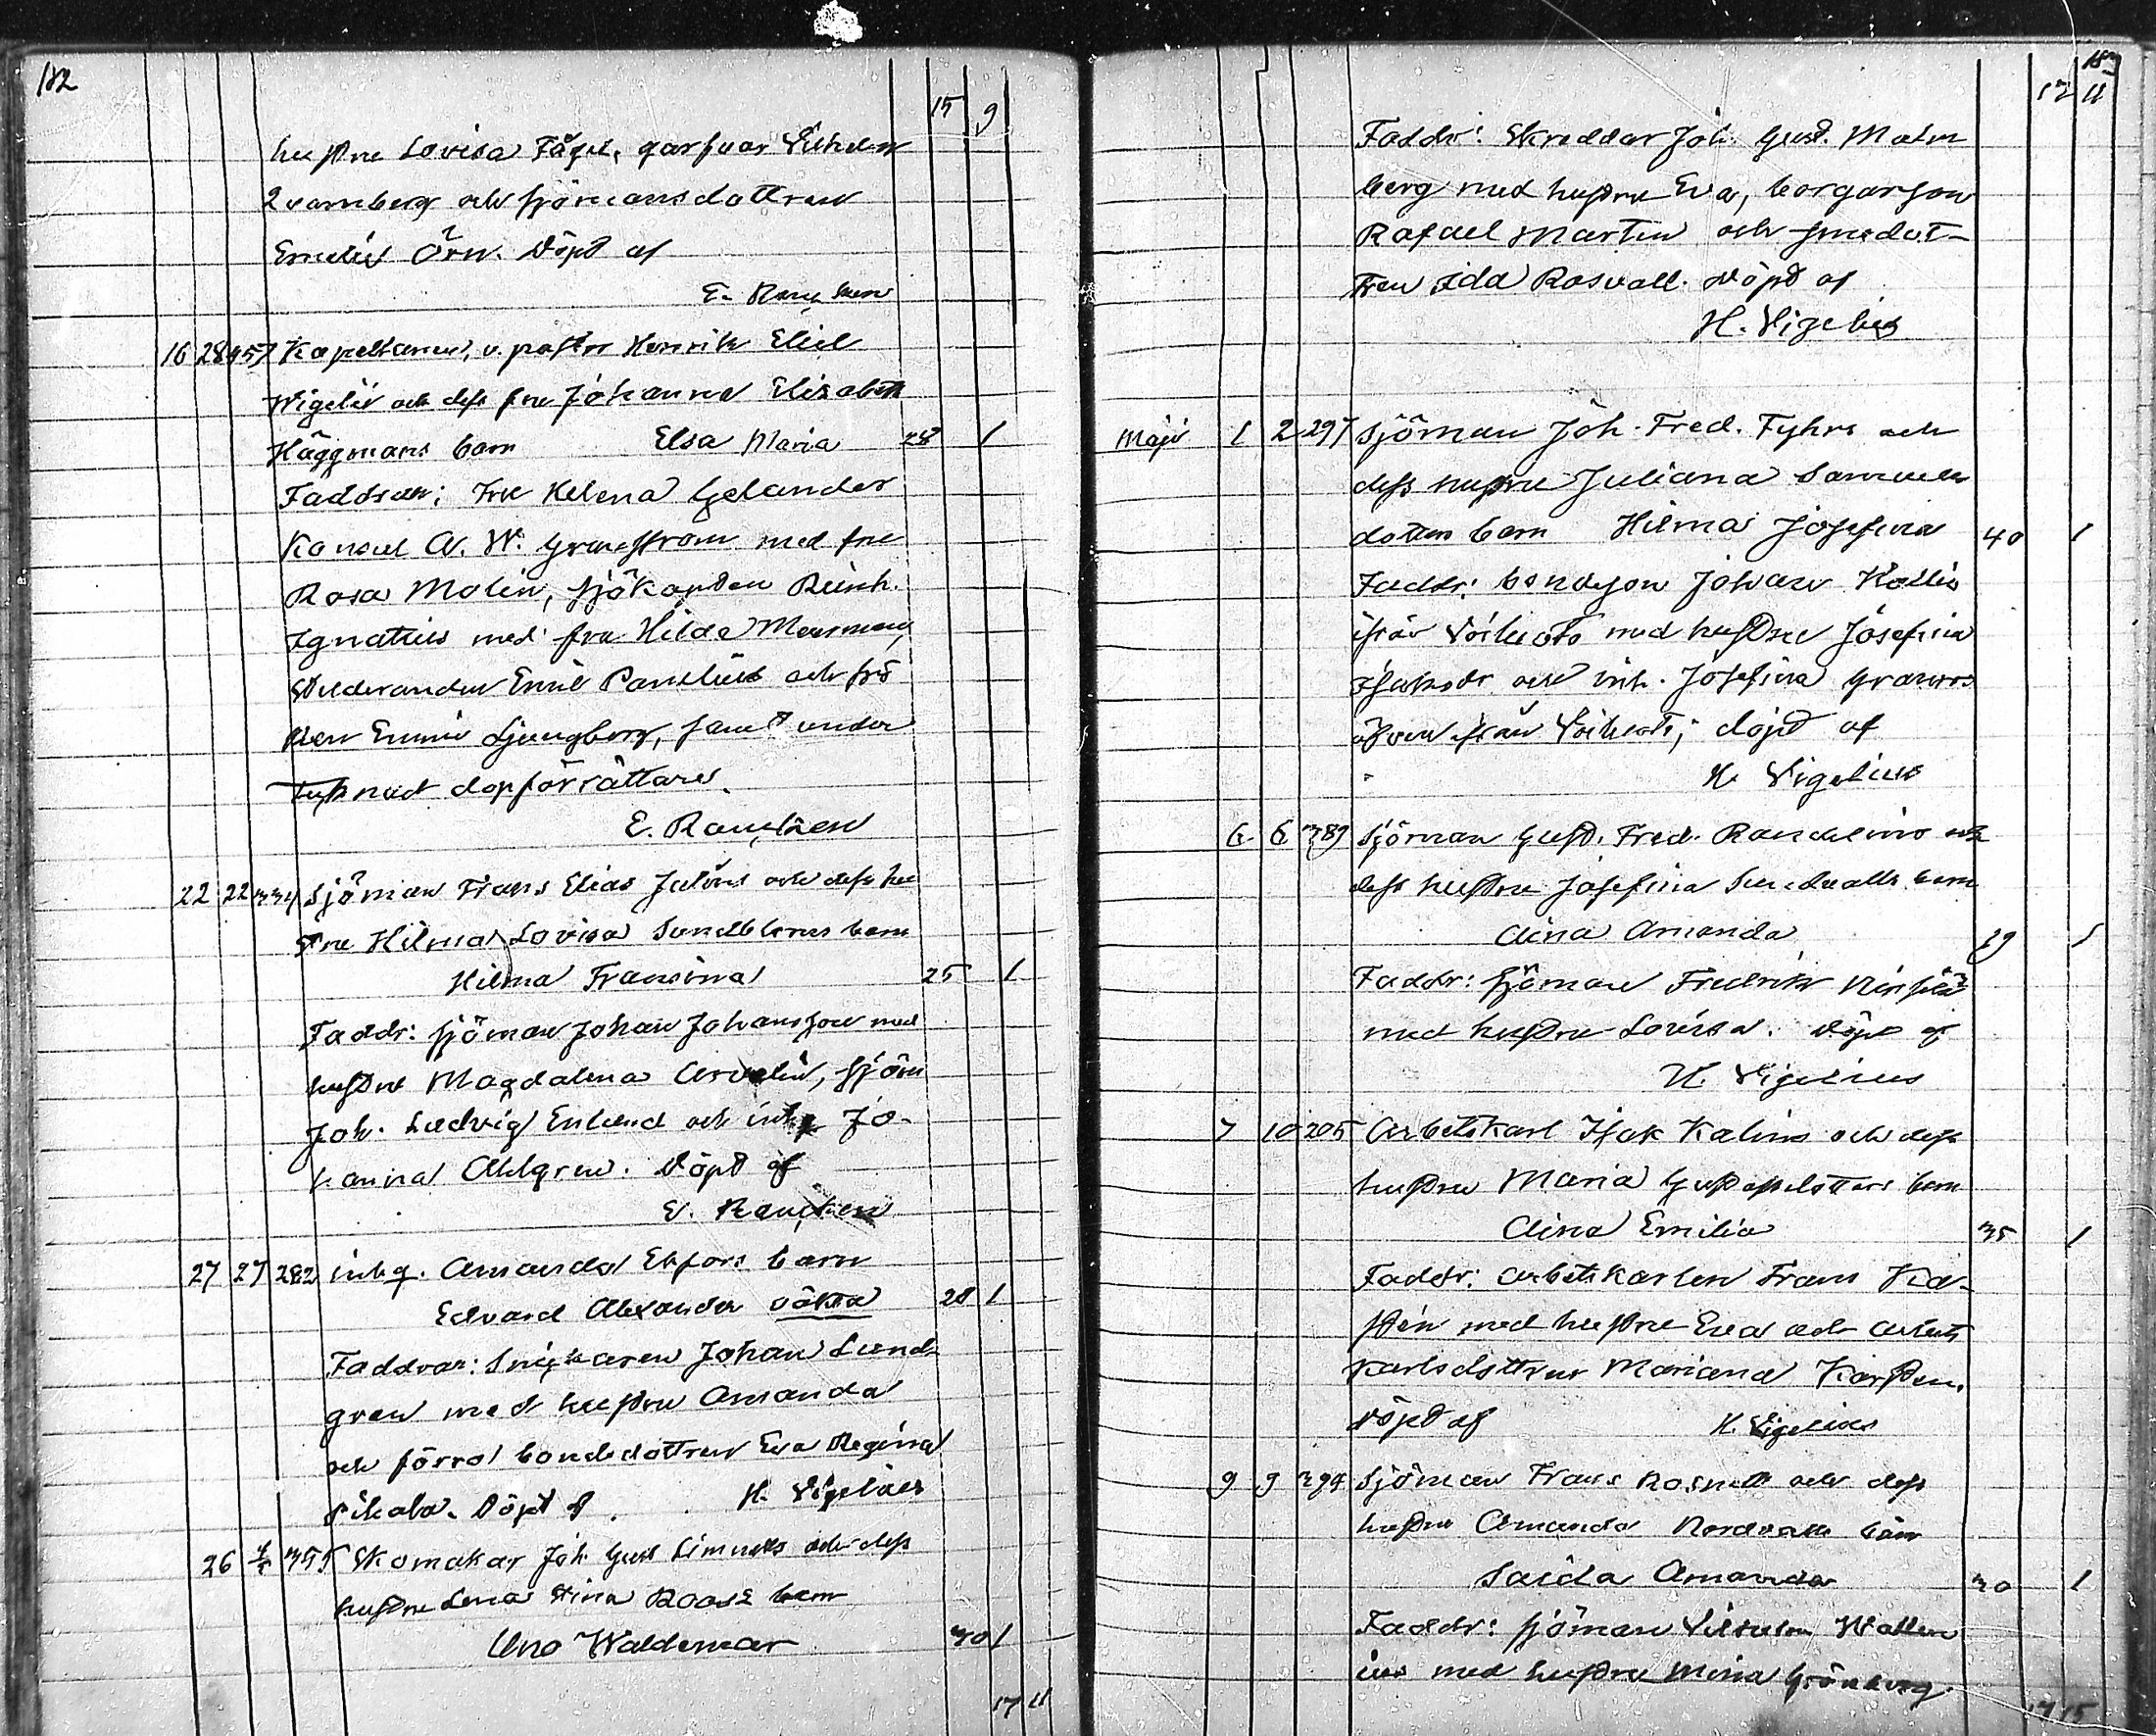 182
15 9
hustru Lovisa Fågel, garfvar Vilhelm
Qvarnberg och sjömansdottren
Emelie Örn. Döpt af
E. Rancken
16 28 457 Kapellanen, v. pastor Henrik Eliel
Wigelii och dess fru Johanna Elisabeth
Häggmans barn Elsa Maria 28 1
Faddrar: Fru Helena Gelander
Konsul A. W. Grönström med fru
Rosa Molin, sjökapten Reinh.
Ignatius med fru Hilda Moorman,
Studeranden Emil Panelius och frö
ken Emmi Ljungberg, samt under
tecknad dopförrättare.
E. Rancken
22 22 334 Sjöman Frans Elias Julins och dess hu
stru Hilma Lovisa Sundbloms barn
Hilma Fransina 25 1
Faddr: sjöman Johan Johansson med
hustru Magdalena Arvelin, sjöm
Joh. Ludvig Enlund och inh. Jo-
hanna Ahlgren. Döpt af
E. Rancken
27 27 282 inhq. Amanda Ekfors barn
Edvard Alexander oäkta 28 1
Faddrar: Snickaren Johan Lund-
gren med hustru Amanda
och förra bondedottren Eva Regina
Pikala. Döpt af H. Vigelius
26 4/5 355 Skomakar Joh. Gust Limnells och dess
hustru Lena Stina Roos's barn
Uno Waldemar 30 1
17 11
183
17 11
Faddr: Skreddar Joh. Gust. Malm
berg med hustru Eva, borgarson
Rafael Martin och smedot-
tren Ida Rosvall. Döpt af
H. Vigelius
Maji 1 2 297 Sjöman Joh. Fred. Fyhrs och
dess hustru Juliana Samuels
dotters barn Hilma Josefina 40 1
Faddr: bondeson Johan Kallio
ifrån Voiluoto med hustru Josefina
och inh. Josefina Granroos
äfven ifrån Voiluoto; döpt af
H. Vigelius
6 6 389 Sjöman Gust. Fred. Randelins och
dess hustru Josefina Sundvalls barn
Aina Amanda 29 1
Faddr: sjöman Fredrik
med hustru Lovisa. Döpt af
H. Vigelius
7 10 205 Arbetskarl Isak Kalins och dess
hustru Maria Gustafsdotters barn
Aina Emilia 35 1
Faddr: arbetskarlen Frans Ka-
stén med hustru Eva och arbets
karlsdottren Mariana Karsten.
Döpt af H. Vigelius
9 9 394 Sjöman Frans Rosnells och dess
hustru Amanda Nordvalls barn
Saida Amanda 30 1
Faddr: sjöman Vilhelm Wallen
ius med hustru Mina Grönberg.
17 15